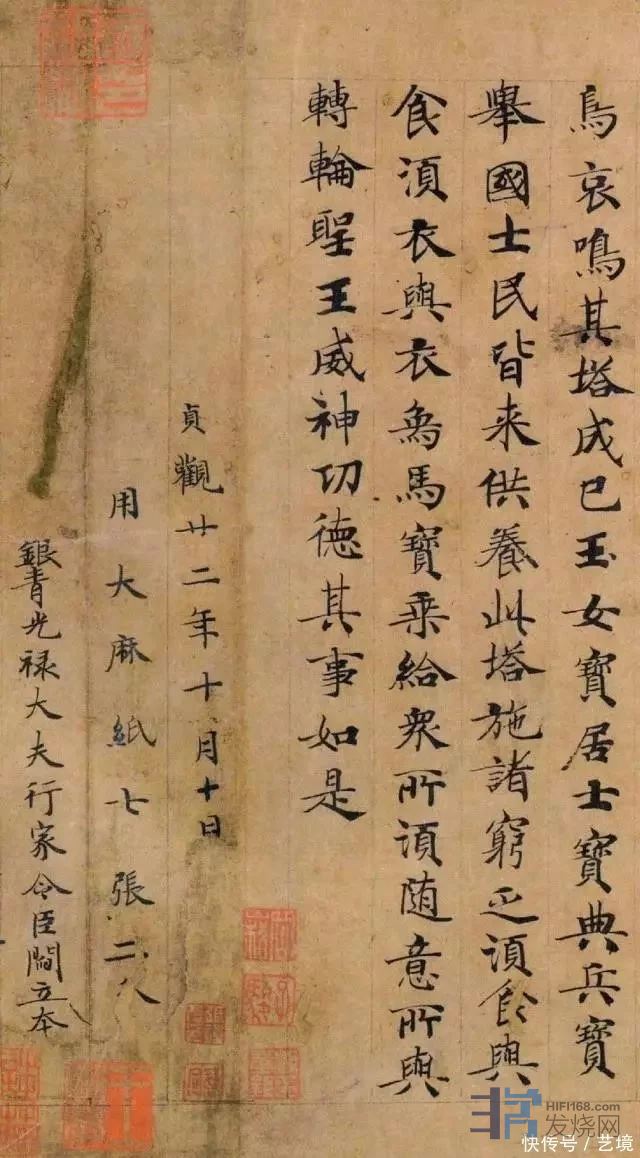 烏哀鳴其塔成已玉女寶居士寶典兵寶
舉國士民皆来供養此塔施諸窮乏須飯與
食須衣與衣為馬寶乗給衆所須随意所與
轉輪聖王威神功德其事如是
貞觀廿二年十月十日
用大麻紙七張二分
銀青光禄大夫行家令臣閻立本
HIFI168.com
发烧网
快传号/艺境